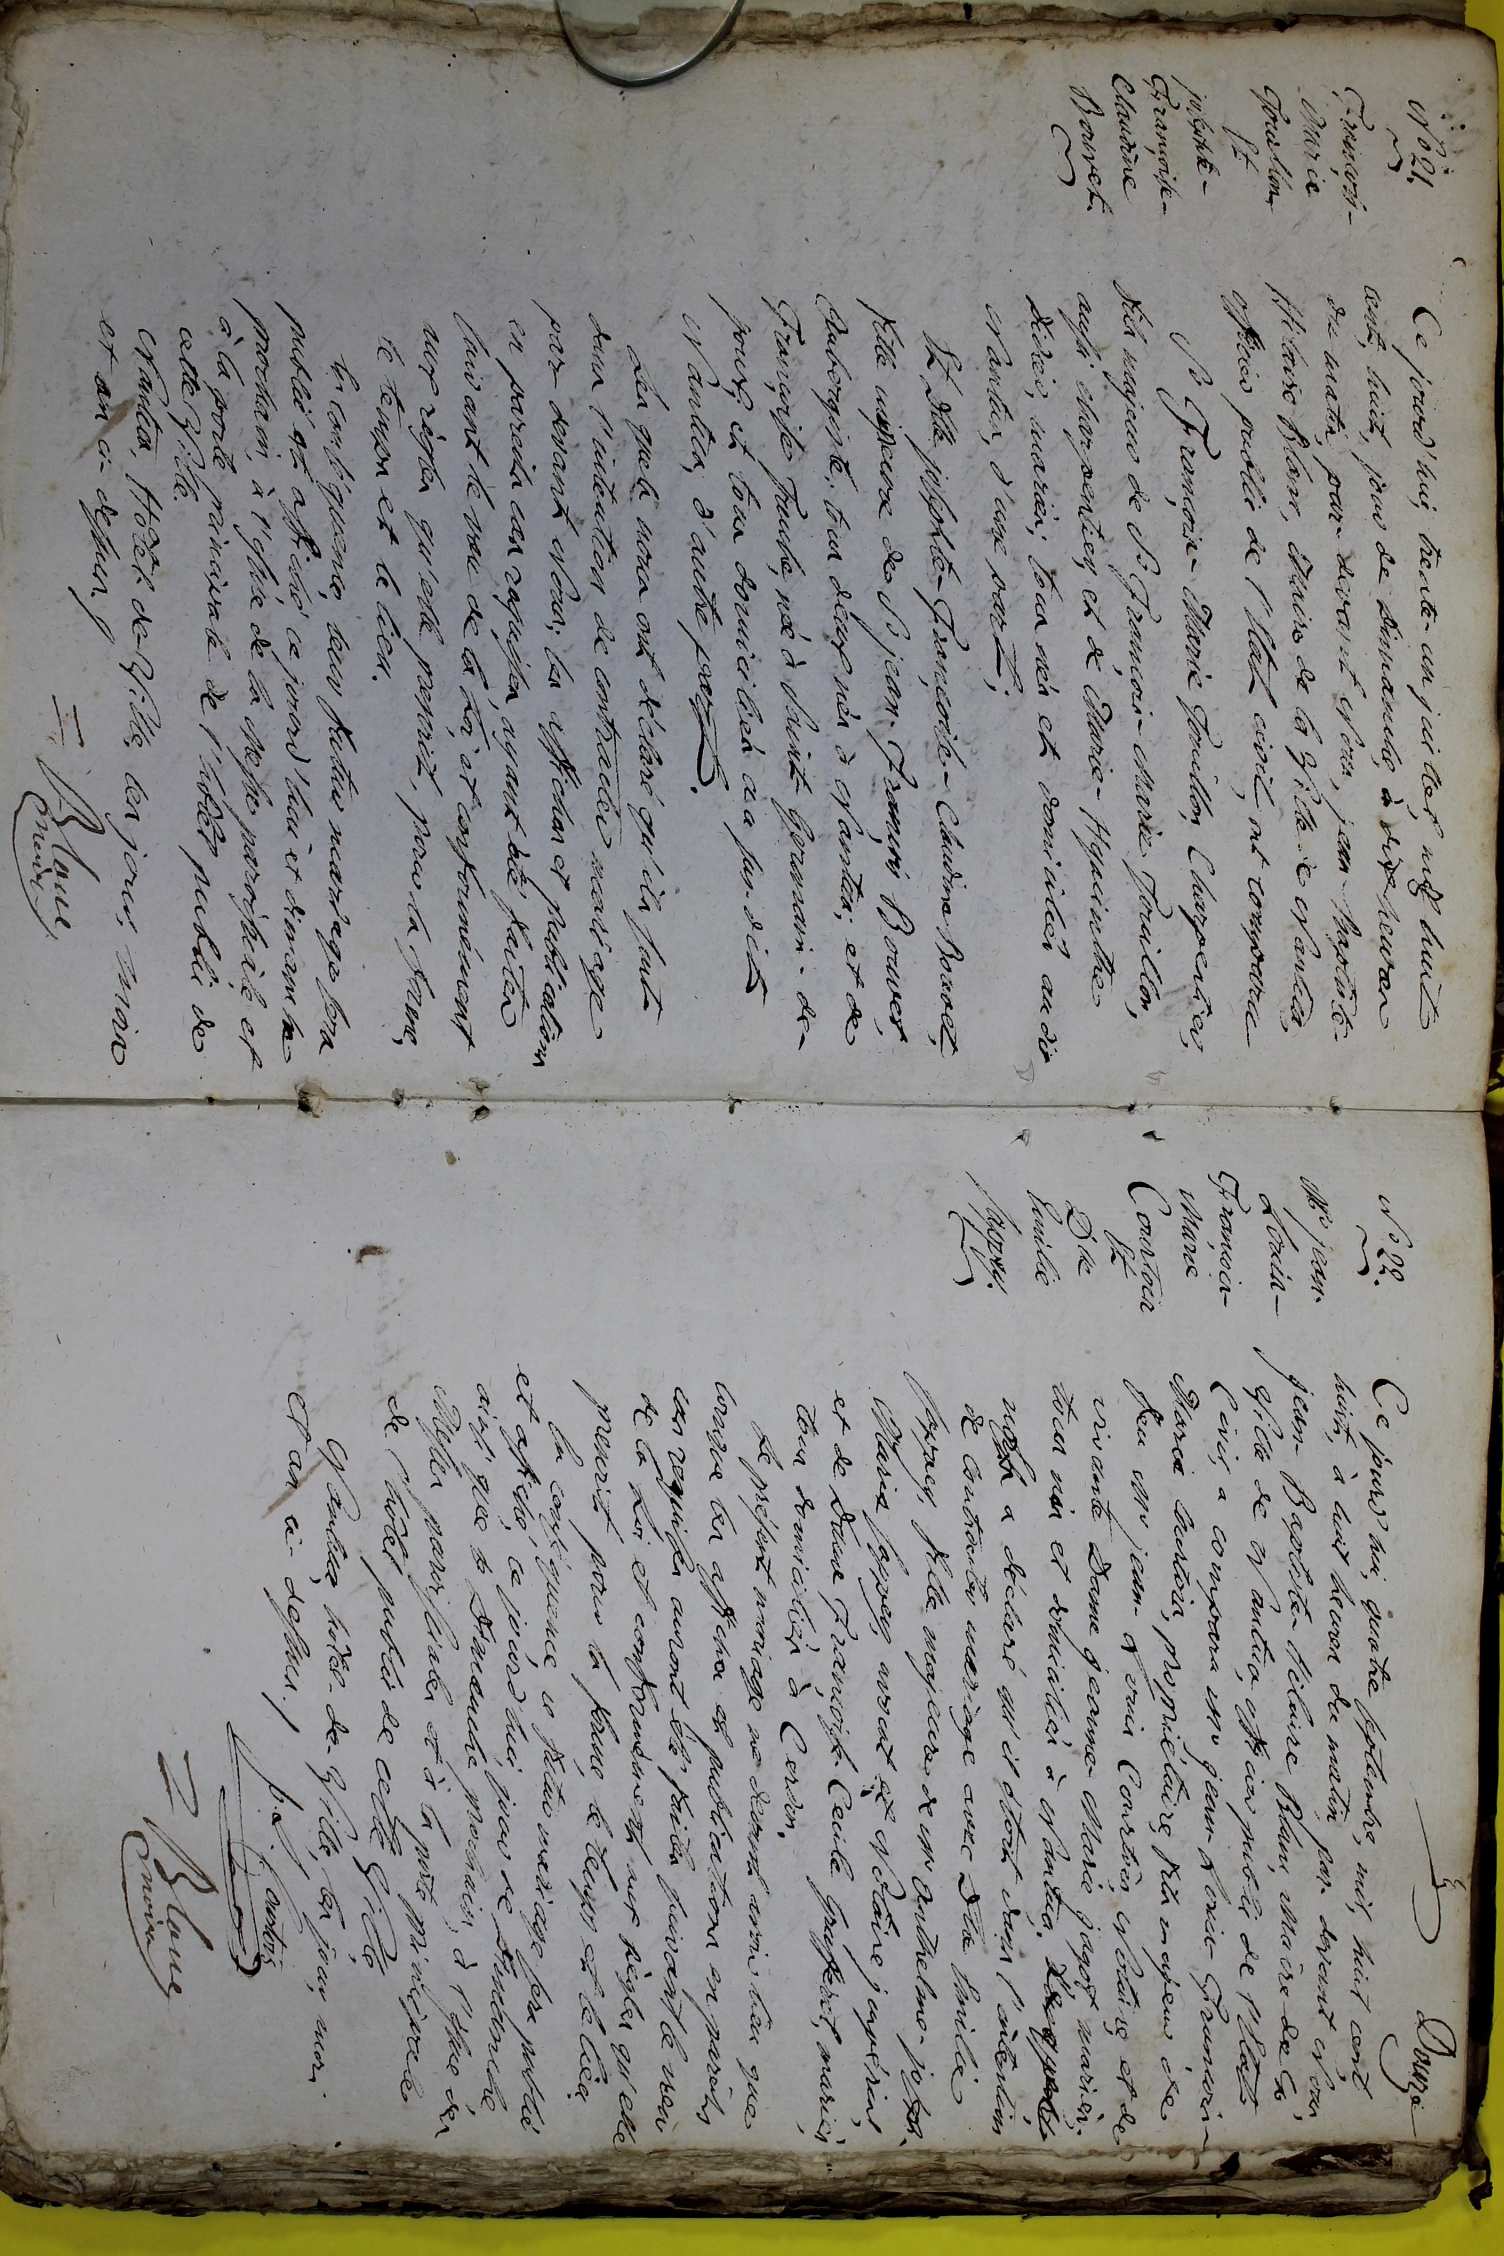 N.° 21.
François-
Marie
Fouillon,
Et
josephte-
Françoise-
Claudine
Bouvet.
Ce jourd'hui, trente-un juillet mil huit
cent, huit, jour de dimanche, à dix heures
du matin, par devant Nous, jean-baptiste-
hilaire Blanc, Maire de la Ville de Nantua,
officier public de l'Etat civil, ont comparu
S.r François-Marie Fouillon, Charpentier,
fils majeur de S.r François-Marie Fouillon,
aussi charpentier, et de Marie-Hyacinthe
mariés, tous nés et domiciliés au dit
Nantua, d'une part;
Et D.lle josephte-Françoise-Claudine Bouvet,
fille mineure de S.r jean-François Bouvet,
Aubergiste, tous deux nés à Nantua; et de
Françoise Truche, née à Saint Germain-de-
joux, et tous domiciliés au sus-dit
Nantua, d'autre part.
Les quels nous ont déclaré qu'ils sont
dans l'intention de contracter mariage
par devant Nous; les affiches et publications
en pareils cas requises, ayant été faites
suivant le vœu de la Loi, et conformément
aux règles qu'elle prescrit, pour la forme,
le temps et le lieu.
En conséquence, leur futur mariage sera
publié et affiché ce jourd'hui et dimanche
prochain, à l'issue de la Messe paroissiale et
à la porte principale de l'hôtel public de
cette Ville.
Nantua, Hôtel de Ville, les jour, mois
et an ci-dessus./
Blanc
maire
Douze
N.° 22.
M.r jean-
Louis-
François-
Marie
Courtois
Et
D.lle
Emilie
Jappey.
Ce jourd'hui, quatre septembre, mil, huit cent
huit, à huit heures du matin par devant Nous,
jean-Baptiste-hilaire Blanc, Maire de la
Ville de Nantua, officier public de l'Etat
Civil, a comparu M.r jean-Louis-François-
Marie Courtois, propriétaire, fils majeur de
feu M.r jean-Louis Courtois, Notaire, et de
vivante Dame jeanne-Marie jagot mariés,
tous nés et domiciliés à Nantua.
a déclaré qu'il étoit dans l'intention
de contracter mariage avec D.lle Emilie
Jappey, fille majeure de M.r Anthelme-joseph-
Marie Jappey, avocat et Notaire impérial,
et de Dame Françoise-Cécile mariés,
tous domiciliés à Cerdon.
Le présent mariage ne devant avoir lieu que
lorsque les affiches et publications en pareils
cas requises auront été faites suivant le vœu
de la Loi et conformément aux règles qu'elle
prescrit pour la forme le temps et le lieu,
En conséquence ce futur mariage sera publié
et affiché, ce jourd'hui, jour de dimanche
ainsi que le dimanche prochain, à l'issue des
Messes paroissiales et à la porte principale
de l'hôtel public de cette Ville
Nantua, hôtel-de-Ville, les jour, mois
et an ci-dessus./
Courtois
Blanc
maire